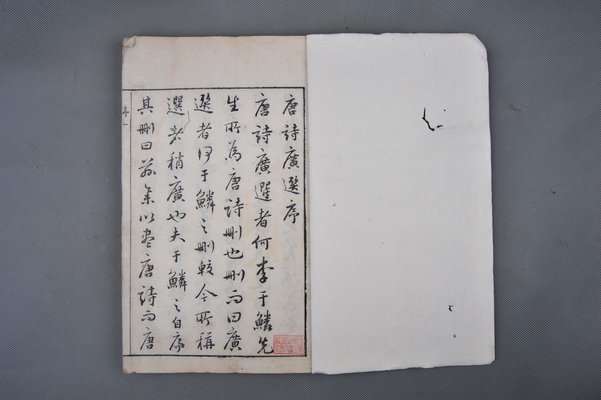 唐詩廣選序
唐詩廣選者何李于鱗先
生所為唐詩刪也刪而曰廣
選者何于鱗之刪較今所稱
選者稍廣也夫于鱗之自序
其刪曰茲集以盡唐詩而唐
序一